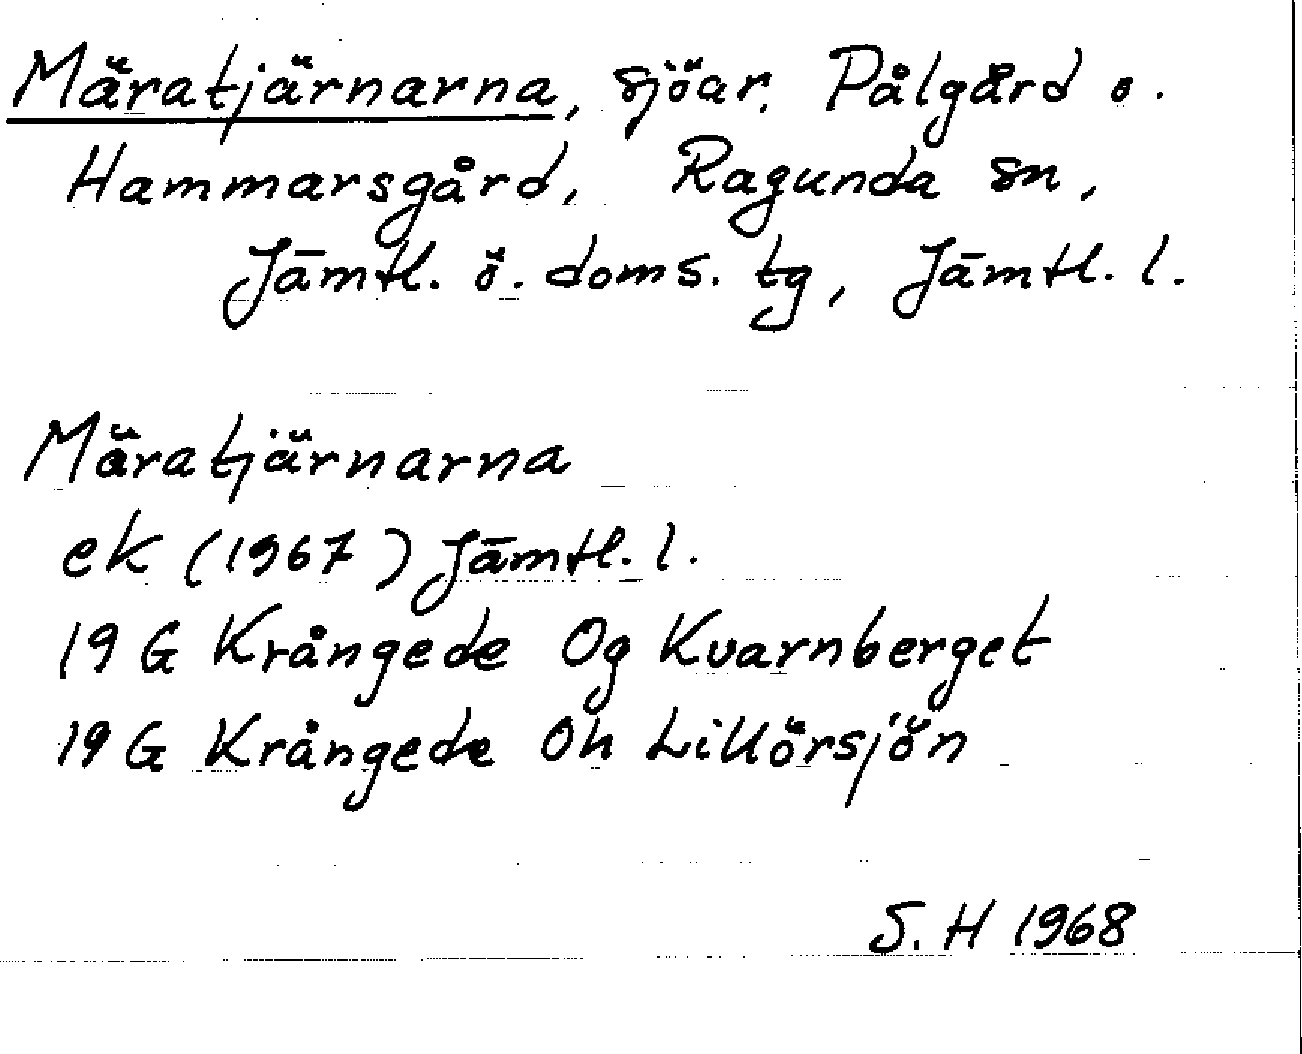 Märatjärnarna, sjöar, Pålgård o.
Hammarsgård, Ragunda sn,
Jämtl. ö. doms. tg, Jämtl. l.
Märatjärnarna
ek (1967) Jämtl. l.
19 G Krångede Og Kvarnberget
19 G Krångede Oh Lillörsjön
S. H 1968